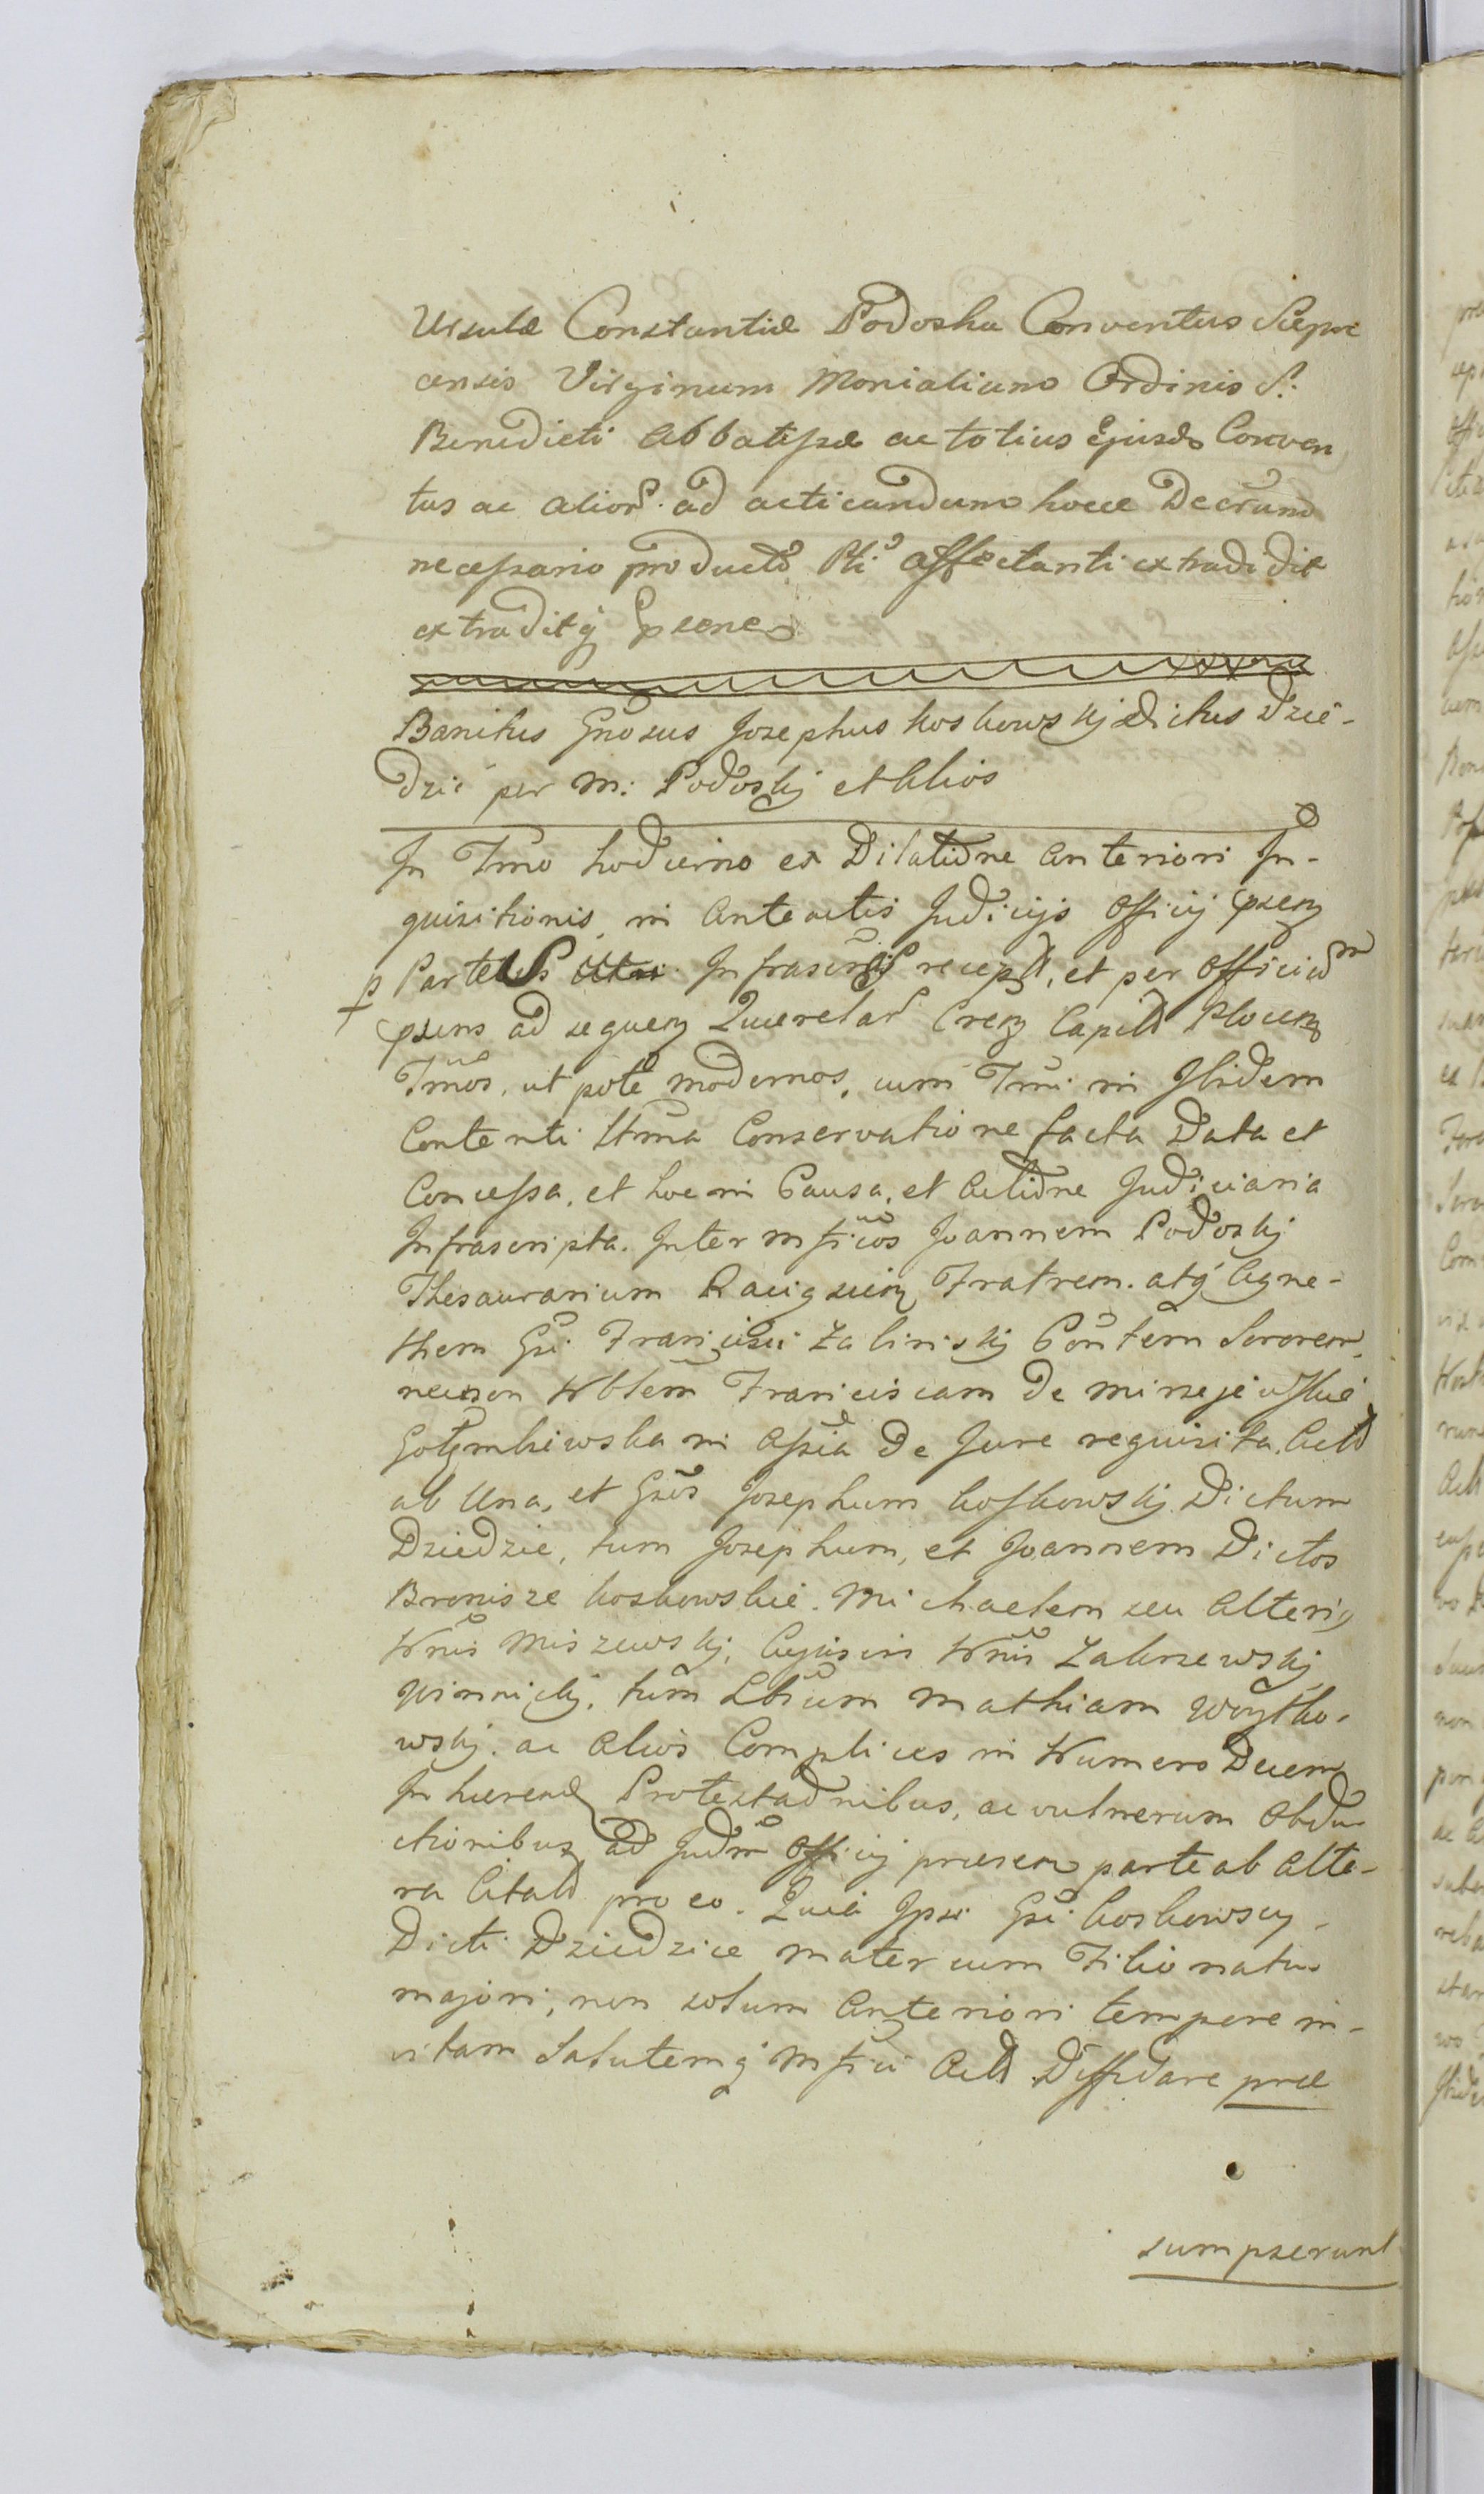 Ursulæ Constantiæ Podoska Conventus Sierpc
ensis Virginum Monialium Ordinis S.
Benedicti Abbatissæ ac totius Ejusd Conven
tus ac alior. ad acticandum hocce Decrum
necessario producto Pti affectanti extradidit
extraditq
Banitus Gnosus Josephus Koskowskj dictus Dzie-
dzic per M. Podoskj et Alios
In Tmo hodierno ex Dilatione Anteriori In-
quisitionis, in Anteactis Judicijs Officij
Partes Infrascrip recept, et per Officium
psens ad sequen Querelar Cren Capit Plocen
Tmos, ut pote modernos, cum Tmi in Ibidem
Contenti Conservatione facta Data et
Concessa, et hoc in Causa, et Actione Judiciaria
Infrascripta. Inter Mficos Joannem Podoskj
Thesaurarium Raciązien Fratrem. atq Agne-
them Gsi Francisci Zalinskj Contem Sororem,
necnon Nblem Franciscam De
Gołembiewska in Assia De Jure requisita. Act
ab Una, et Gsos Josephum Koskowskj Dictum
Dziedzic, tum Josephum, et Joannem Dictos
Bronisze Koskowskie. Michaelem seu Alteris
Nnis Miszewskj, Nnis Zakrzewskj
Winnickj, tum Lbium Mathiam Woytko-
wskj. ac Alios Complices in Numero Decem
Inhæren Protestaonibus, ac vulnerum Obdu-
ctionibus ad Judm Officij præsen parte ab Alte-
ra Citat pro eo. Quia Ipsi Gsi Koskowscy
Dicti Dziedzice Mater cum Filio natu
majori, non solum Anteriori tempore in-
vitam Salutemq Mfici Act Diffidare præ
sumpserunt